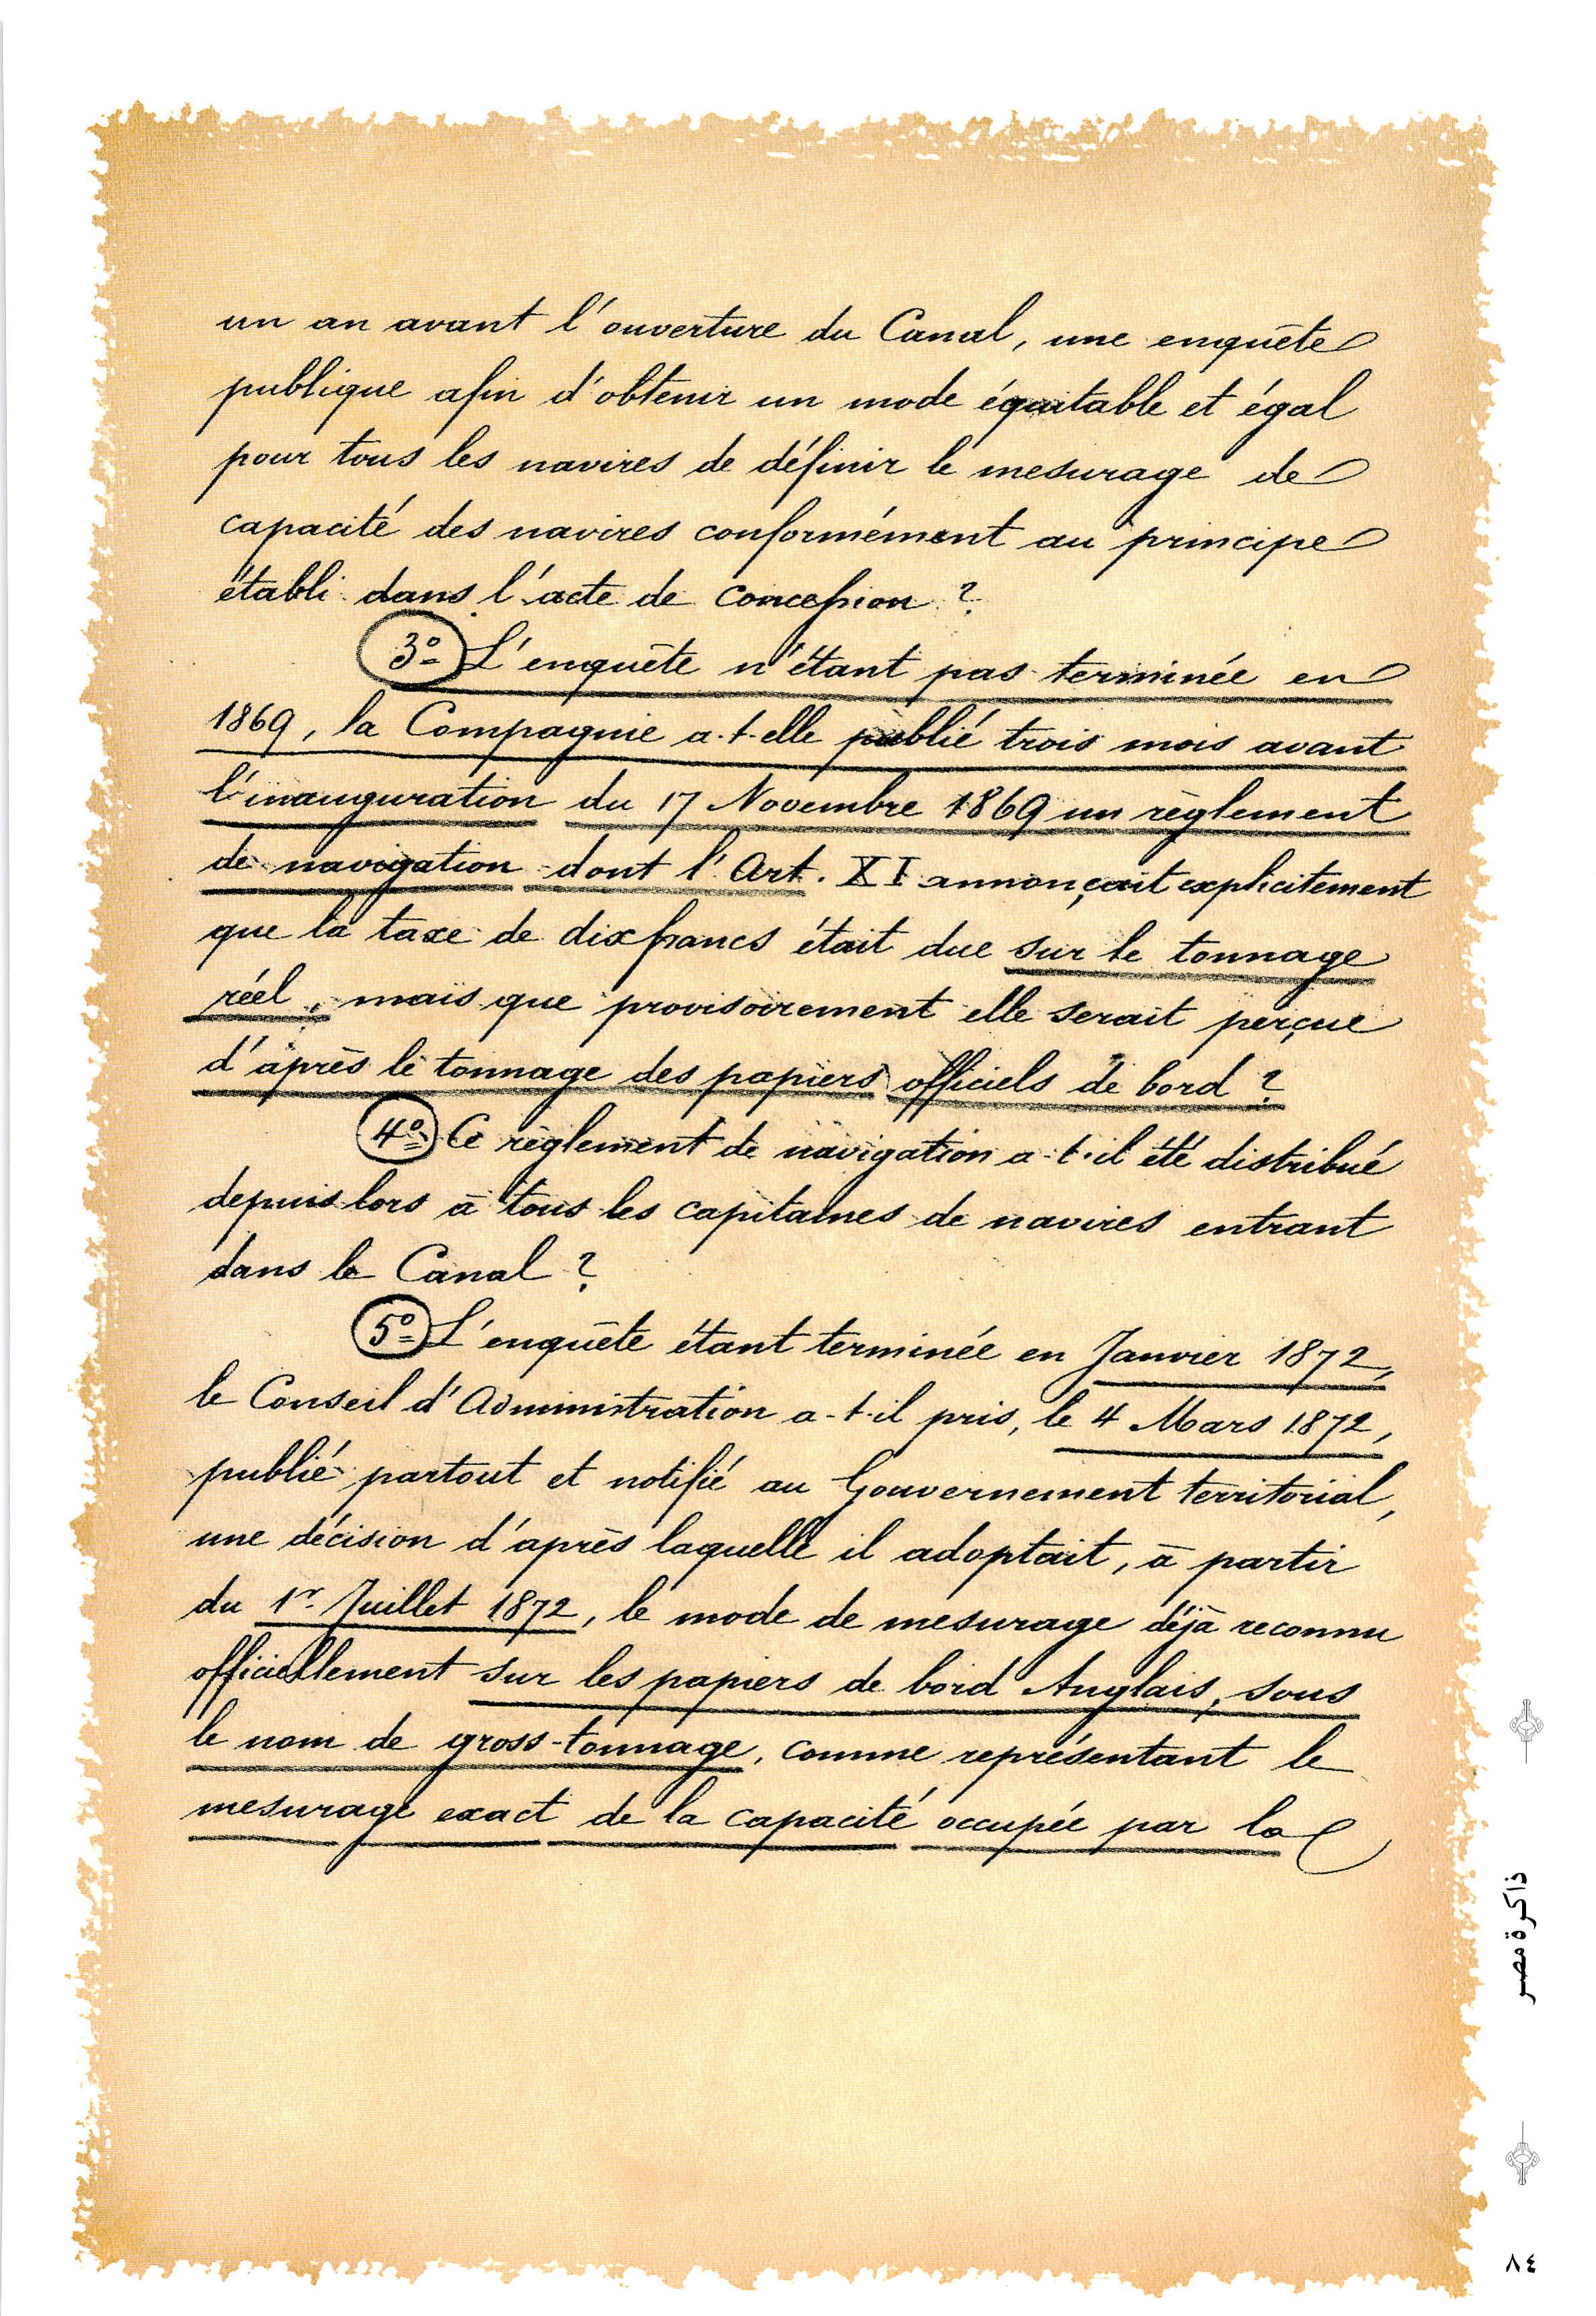 un an avant l'ouverture du Canal, une enquête
publique afin d'obtenir un mode équitable et égal
pour tous les navires de définir le mesurage de
capacité des navires conformément au principe
établi dans l'acte de concession ?
3º L'enquête n'étant pas terminée en
1869, la Compagnie a-t-elle publié trois mois avant
l'inauguration du 17 Novembre 1869 un règlement
de navigation dont l'Art. XI annonçait explicitement
que la taxe de dix francs était due sur le tonnage
réel, mais que provisoirement elle serait perçue
d'après le tonnage des papiers officiels de bord ?
4º Ce règlement de navigation a-t-il été distribué
depuis lors à tous les capitaines de navires entrant
dans le Canal ?
5º L'enquête étant terminée en Janvier 1872,
le Conseil d'Administration a-t-il pris, le 4 Mars 1872,
publié partout et notifié au Gouvernement territorial,
une décision d'après laquelle il adoptait, à partir
du 1r. Juillet 1872, le mode de mesurage déjà reconnu
officiellement sur les papiers de bord Anglais, sous
le nom de gross-tonnage, comme représentant le
mesurage exact de la capacité occupée par la
ذاكرة مصر
٨٤